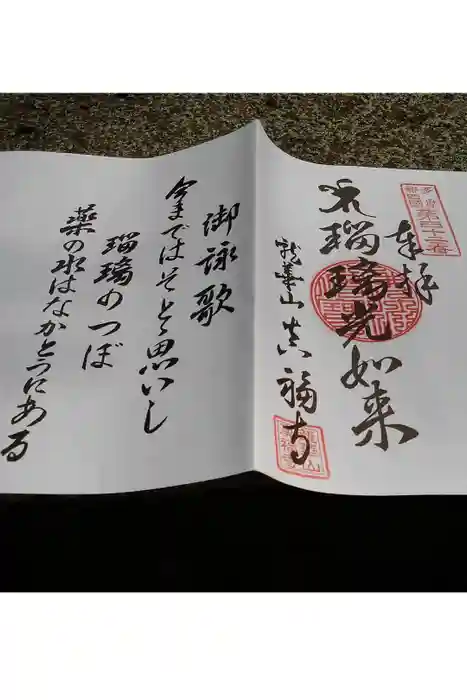 第四十二番
奉拝
瑠璃光如来
龍華山 真福寺
御詠歌
今まではそとゝ思いし
瑠璃のつぼ
薬の水はなかとつにある